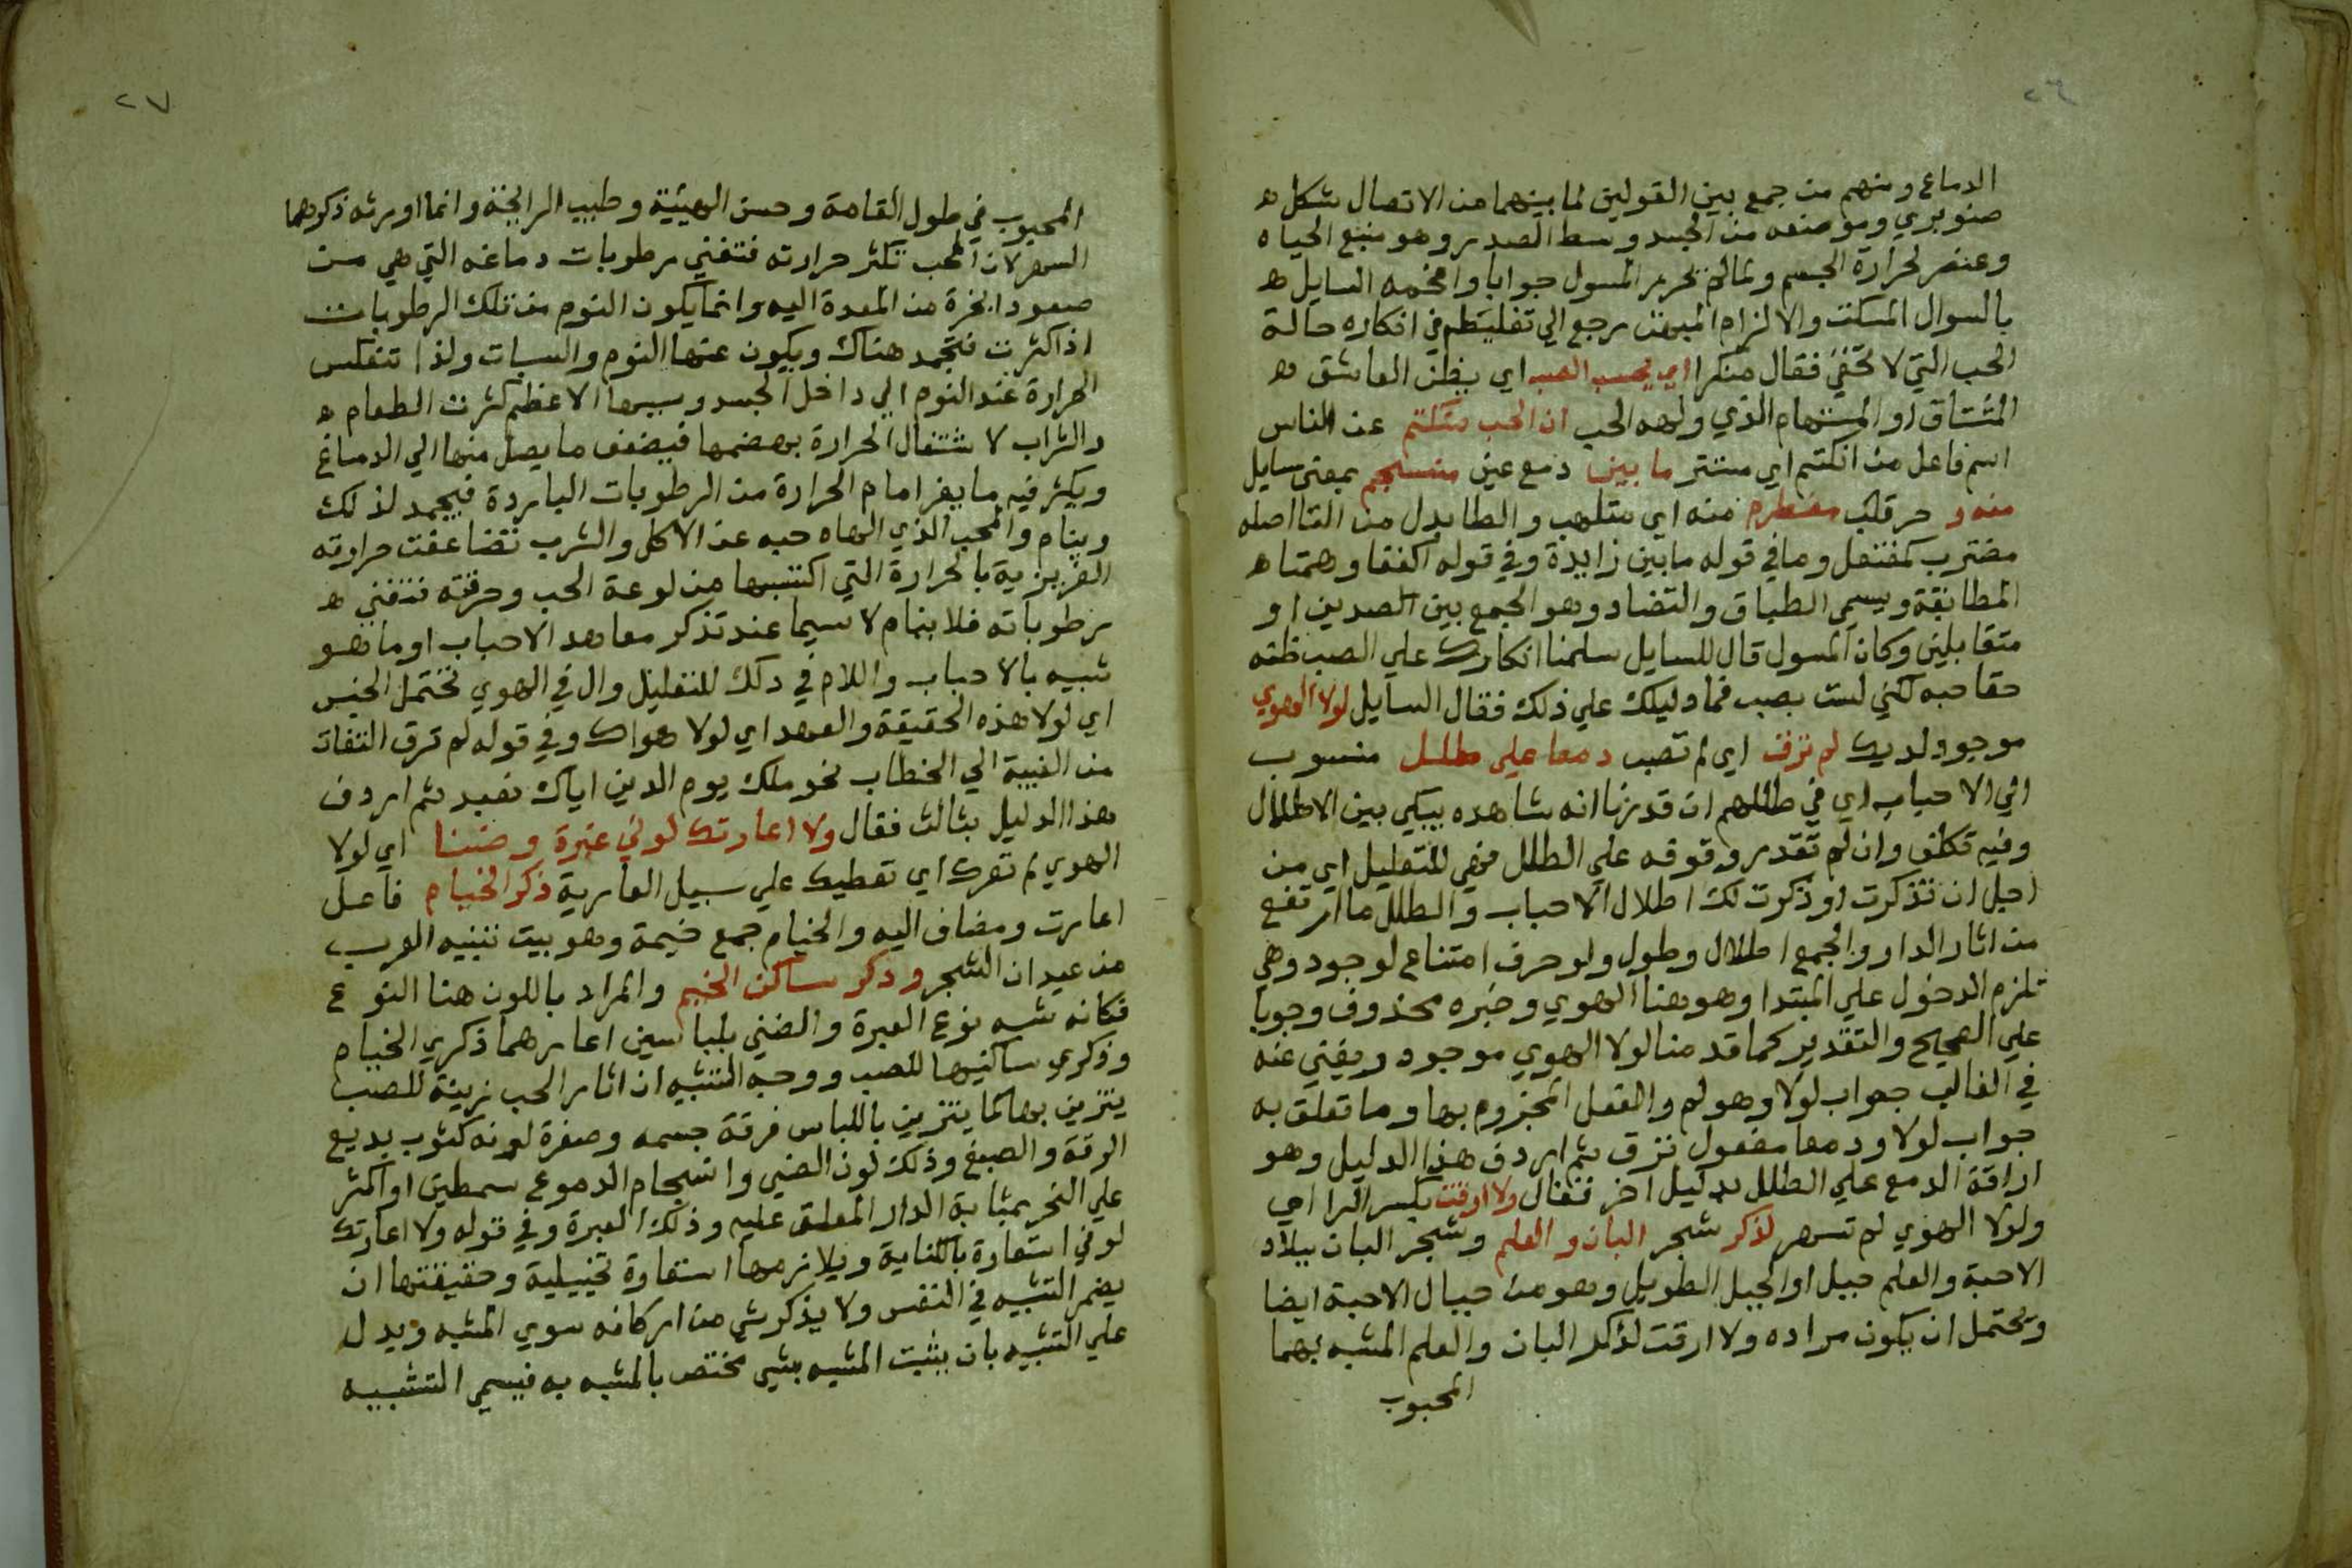 ٢٦
الدماغ ومنهم من جمع بين القولين لما بينهما من الاتصال شكله
صنوبري وموضعه من الجسد وسط الصدر وهو منبع الحياه
وعنصر لحرارة الجسم ولما لم يحرر المسول جوابا وافحمه السايل
بالسوال المسكت والالزام المبهت رجع الي تغليطه في انكاره حالة
الحب التي لا تخفي فقال منكرا ايحسب الصب اي يظن العاشق
المشتاق او المستهام الذي ولهه الحب ان الحب منكتم عن الناس
اسم فاعل من انكتم اي مستتر ما بين دمع عين منسجم بمعني سايل
منه و حر قلب مضطرم منه اي ملتهب والطا بدل من التا اصله
مضترب كمفتعل وما في قوله ما بين زايدة وفي قوله اكففا وهمتا
المطابقة ويسمي الطباق والتضاد وهو الجمع بين الضدين او
متقابلين وكان المسول قال للسايل سلمنا انكارك علي الصب ظنه
حقا حبه لكني لست بصب فما دليلك علي ذلك فقال السايل لولا الهوي
موجود لديك لم ترق اي لم تصب دمعا علي طلل منسوب
الي الاحباب اي في طللهم ان قدرنا انه شاهده يبكي بين الاطلال
وفيه تكلف وان لم تقدر وقوفه علي الطلل فهي للتعليل اي من
اجل ان تذكرت او ذكرت لك اطلال الاحباب والطلل ما ارتفع
من اثار الدار والجمع اطلال وطول ولو حرف امتناع لوجود وهي
تلزم الدخول علي المبتدا وهو هنا الهوي وخبره محذوف وجوبا
علي الصحيح والتقدير كما قدمنا لولا الهوي موجود ويغني عنه
في الغالب جواب لولا وهو لم والفعل المجزوم بها وما تعلق به
جواب لولا ودمعا مفعول ترق ثم اردف هذا الدليل وهو
اراقة الدمع علي الطلل بدليل اخر فقال ولا ارقت بكسر الرا اي
ولولا الهوي لم تسهر لذكر شجر البان والعلم وشجر البان ببلاد
الاحبة والعلم جبل او الجبل الطويل وهو من جبال الاحبة ايضا
ويحتمل ان يكون مراده ولا ارقت لذكر البان والعلم المشبه بهما
المحبوب
٢٧
المحبوب في طول القامة وحسن الهيئية وطيب الرايحة وانما اورثه ذكرهما
السهر لان المحب تكثر حرارته فتفني رطوبات دماغه التي هي من
صعود ابخرة من المعدة اليه وانما يكون النوم من تلك الرطوبات
اذا كثرت فتجمد هناك ويكون عنها النوم والسبات ولذا تنعكس
الحرارة عند النوم الي داخل الجسد وسببها الاعظم كثرت الطعام
والشراب لاشتغال الحرارة بهضمها فيضعف ما يصل منها الي الدماغ
ويكثر فيه ما يفر امام الحرارة من الرطوبات الباردة فيجمد لذلك
وينام والمحب الذي الهاه حبه عن الاكل والشرب تضاعفت حرارته
الغريزية بالحرارة التي اكتسبها من لوعة الحب وحرقته فتفني
رطوباته فلا ينام لا سيما عند تذكر معاهد الاحباب او ما هو
شبيه بالاحباب واللام في ذلك للتعليل وال في الهوي تحتمل الجنس
اي لولا هذه الحقيقة والعهد اي لولا هواك وفي قوله لم ترق التفات
من الغيبة الي الخطاب نحو ملك يوم الدين اياك نعبد ثم اردف
هذا الدليل بثالث فقال ولا اعارتك لوني عبرة وضنا اي لولا
الهوي لم تعرك اي تعطيك علي سبيل العارية ذكر الخيام فاعل
اعارت ومضاف اليه والخيام جمع خيمة وهو بيت تبنيه العرب
من عيدان الشجر وذكر ساكن الخيم والمراد باللون هنا النوع
فكانه شبه نوع العبرة والضني بلباسين اعارهما ذكري الخيام
وذكري ساكنيها للصب ووجه التشبيه ان اثار الحب زينة للصب
يتزين بها كما يتزين باللباس فرقة جسمه وصفرة لونه كثوب بديع
الرقة والصبغ وذلك لون الضني وانسجام الدموع سمطين او اكثر
علي النحر بمثابة الدار المعلق عليه وذلك العبرة وفي قوله ولا اعارتك
لوني استعارة بالكناية ويلازمها استعارة تخييلية وحقيقتها ان
يضمر التشبيه في النفس ولا يذكر شي من اركانه سوي المشبه ويدل
علي التشبيه بان يثبت المشبه بشي مختص بالمشبه به فيسمي التشبيه